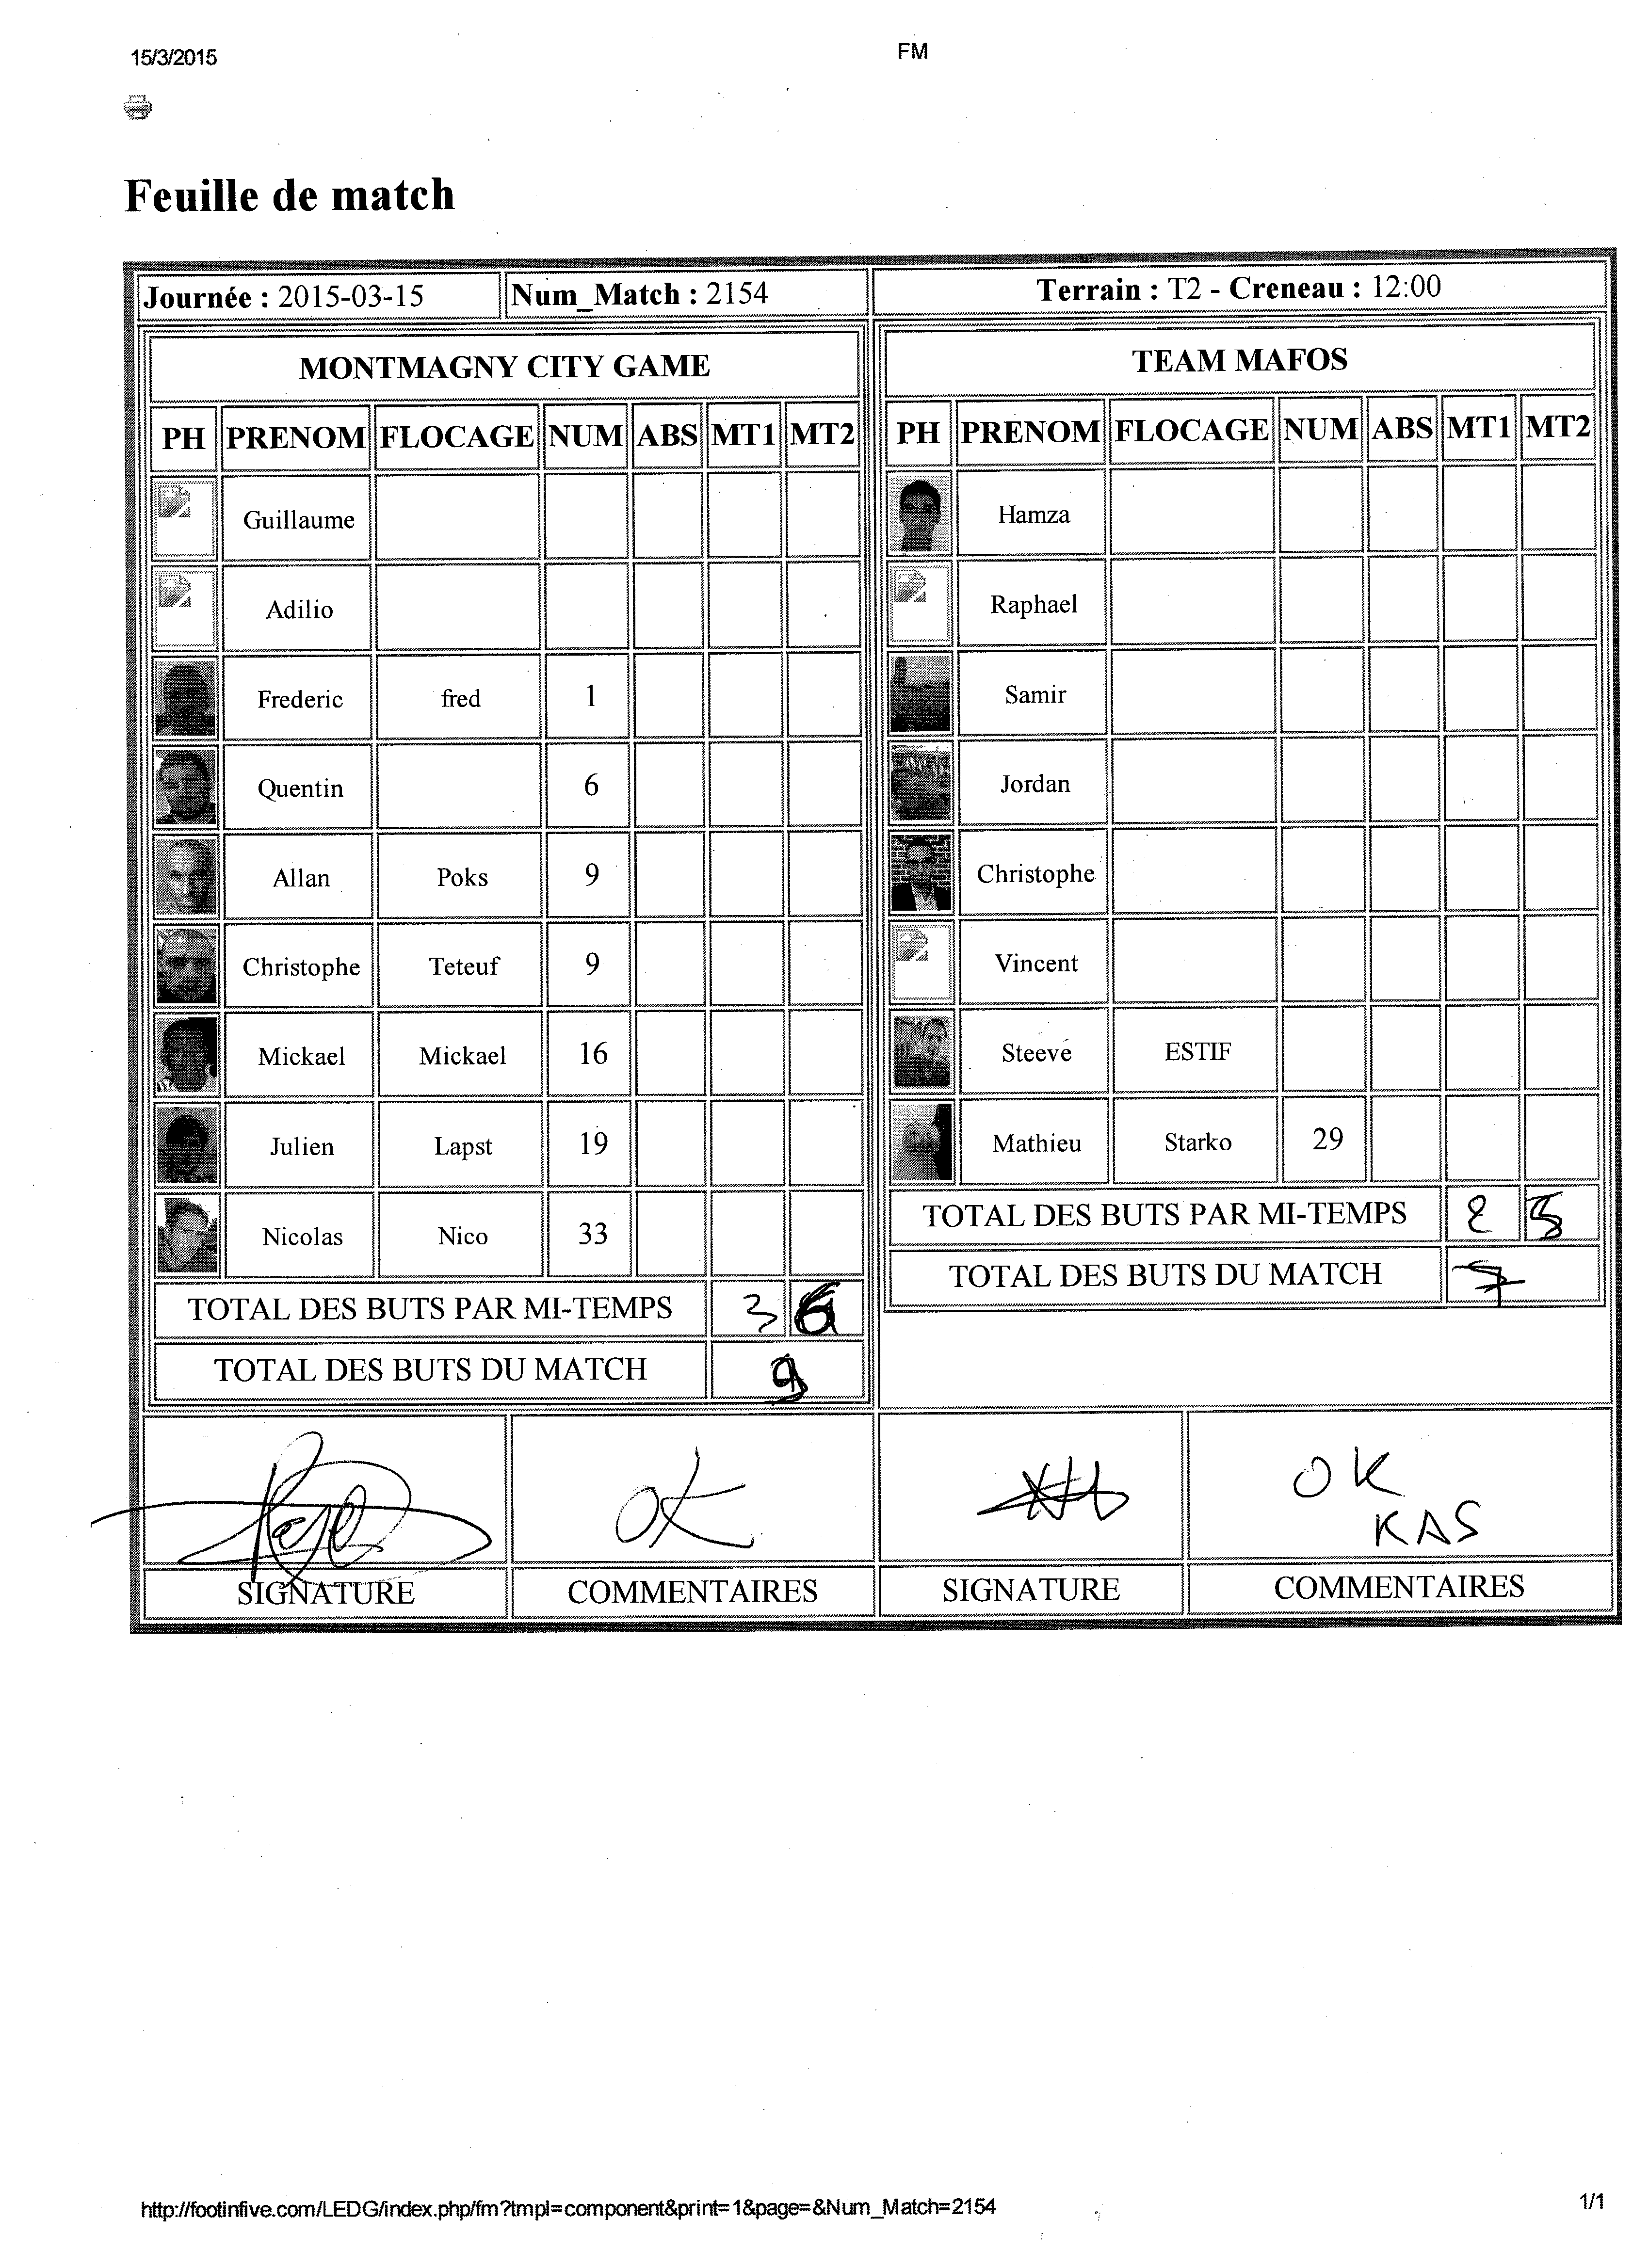 15/3/2015 FM
Feuille de match
Journée : 2015-03-15 Num_Match : 2154 Terrain : T2 - Creneau : 12:00
MONTMAGNY CITY GAME
PH PRENOM FLOCAGE NUM ABS MT1 MT2
Guillaume
Adilio
Frederic fred 1
Quentin 6
Allan Poks 9
Christophe Teteuf 9
Mickael Mickael 16
Julien Lapst 19
Nicolas Nico 33
TOTAL DES BUTS PAR MI-TEMPS 3 6
TOTAL DES BUTS DU MATCH 9
TEAM MAFOS
PH PRENOM FLOCAGE NUM ABS MT1 MT2
Hamza
Raphael
Samir
Jordan
Christophe
Vincent
Steeve ESTIF
Mathieu Starko 29
TOTAL DES BUTS PAR MI-TEMPS 2 5
TOTAL DES BUTS DU MATCH 7
OK
OK
KAS
SIGNATURE COMMENTAIRES SIGNATURE COMMENTAIRES
http://footinfive.com/LEDG/index.php/fm?tmpl=component&print=1&page=&Num_Match=2154 1/1